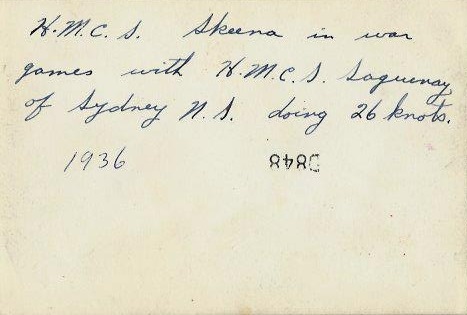 H.M.C.S. Skeena in war
games with H.M.C.S. Saguenay
of Sydney N.S. doing 26 knots.
1936 D848